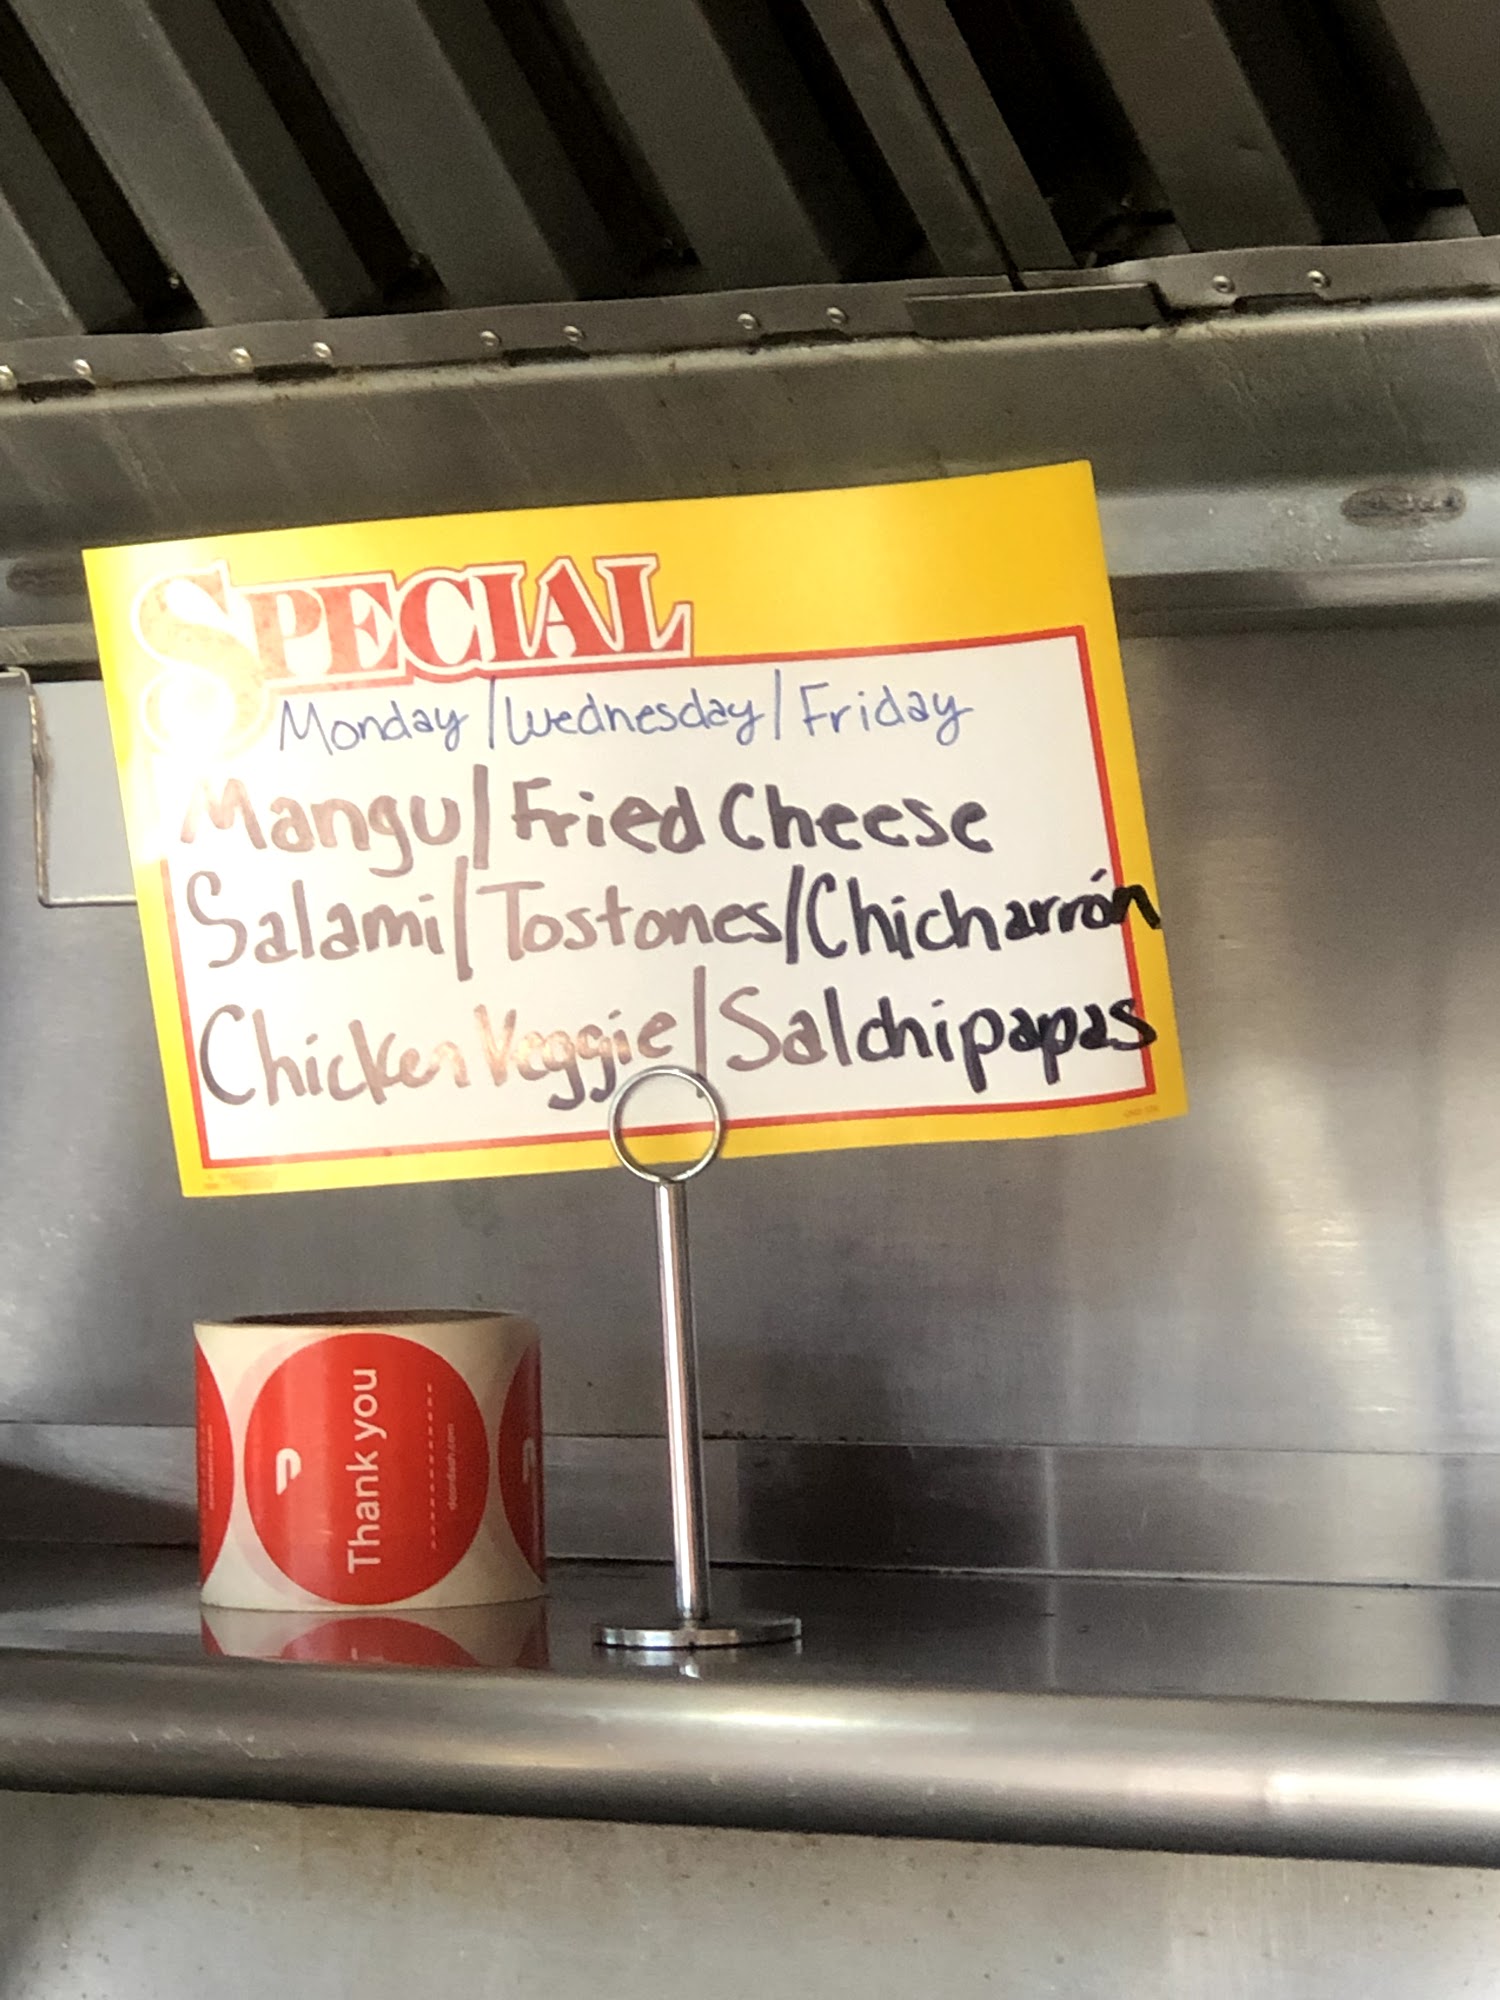 SPECIAL
Monday/Wednesday/Friday
Mangu/Fried Cheese
Salami/Tostones/Chicharrón
Chicken Veggie/Salchipapas
Thank you
doordash.com